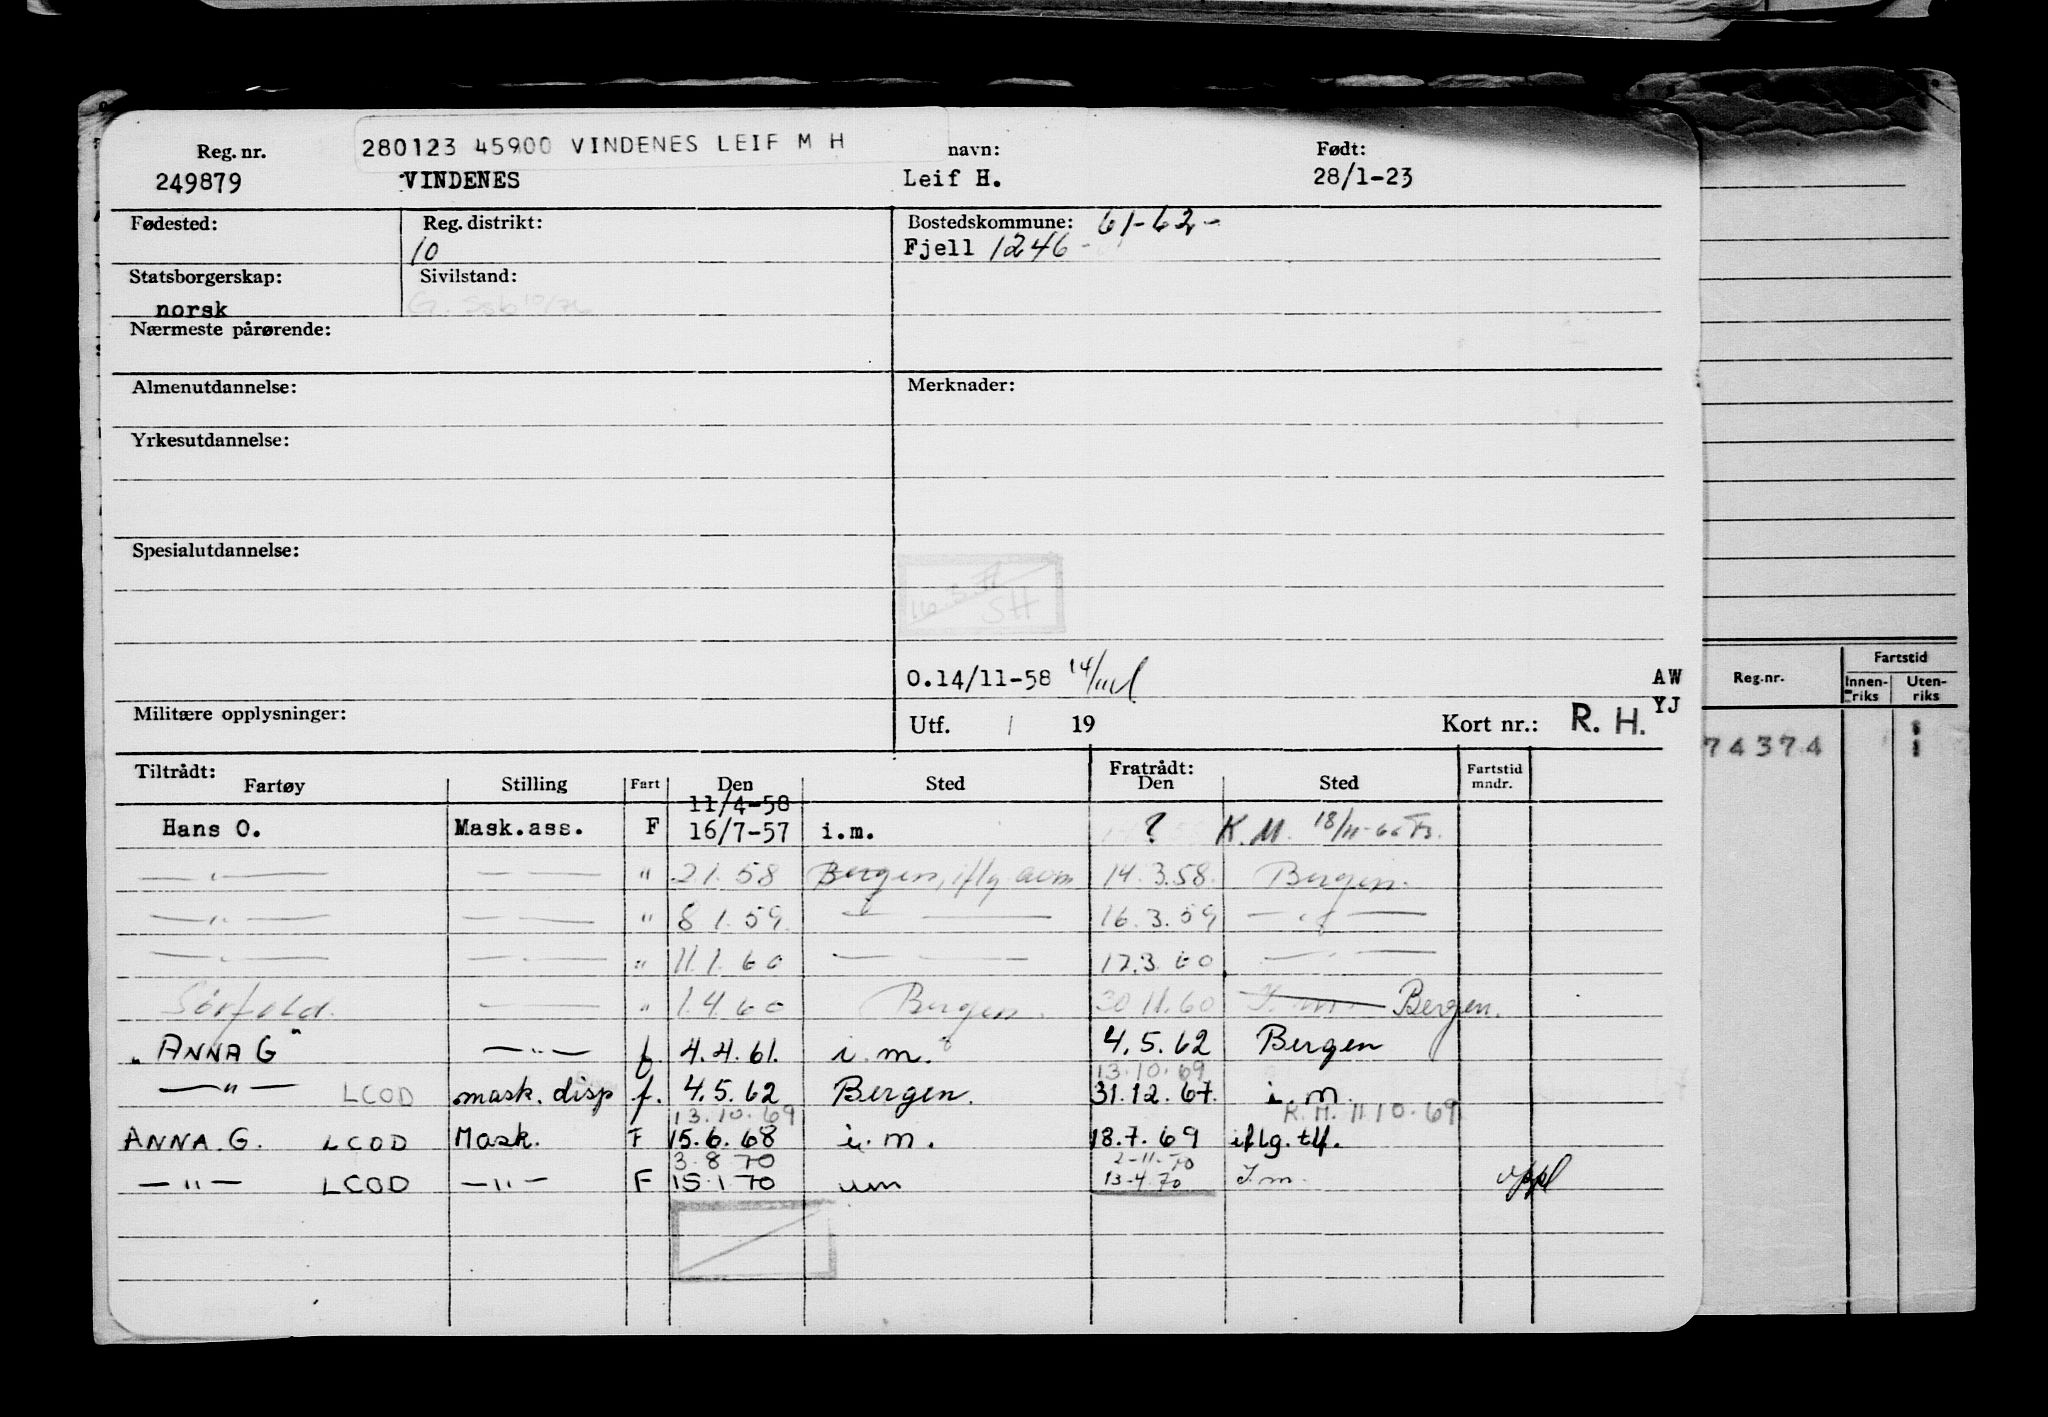 280123 45900 VINDENES LEIF M H
Reg. nr. navn: Født:
249879 VINDENES Leif H. 28/1-23
Fødested: Reg. distrikt: Bostedskommune: 61-62-
10 Fjell 1246-
Statsborgerskap: Sivilstand:
norsk G.
Nærmeste pårørende:
Almenutdannelse: Merknader:
Yrkesutdannelse:
Spesialutdannelse:
SH
O.14/11-58 AW
Militære opplysninger: YJ
Utf. / 19 Kort nr.: R. H.
Tiltrådt: Fratrådt: Fartstid
Fartøy Stilling Fart Den Sted Den Sted mndr.
11/4-58
Hans O. Mask.ass. F 16/7-57 i.m. ? K.M. 18/11-66
—"— — — " 2.1.58 Bergen, iflg 14.3.58. Bergen.
—"— — — " 8.1.59. — — 16.3.59 —"—
—"— — — " 11.1.60 — — 17.3.60 —"—
Sörfold. — — " 1.4.60 Bergen. 30.11.60 I.m. Bergen.
"ANNA G" —"— f. 4.4.61. i.m. 4.5.62 Bergen
13.10.69
—"— LCOD mask. disp f. 4.5.62 Bergen. 31.12.67. i.m.
13.10.69 R.M. 11.10.69
ANNA. G. LCOD Mask. F 15.6.68 i.m. 18.7.69 iflg. tlf.
3.8.70 2-11-70
—"— LCOD —"— F 15.1.70 im 13-4.70 I.m. oppl
Reg.nr. Fartstid
Innenriks Utenriks
74374